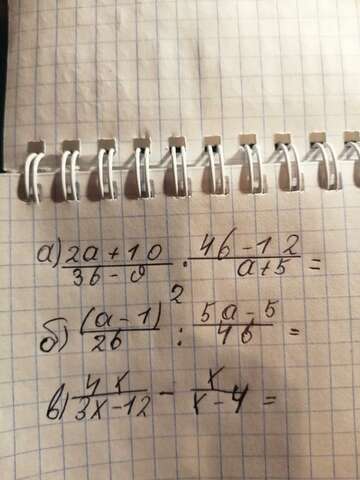 а) (2a+10)/(3b-9) · (4b-12)/(a+5) =
б) (a-1)²/(2b) : (5a-5)/(4b) =
в) (4x)/(3x-12) - x/(x-4) =